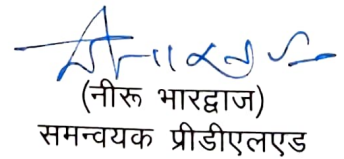 (नीरू भारद्वाज)
समन्वयक प्रीडीएलएड